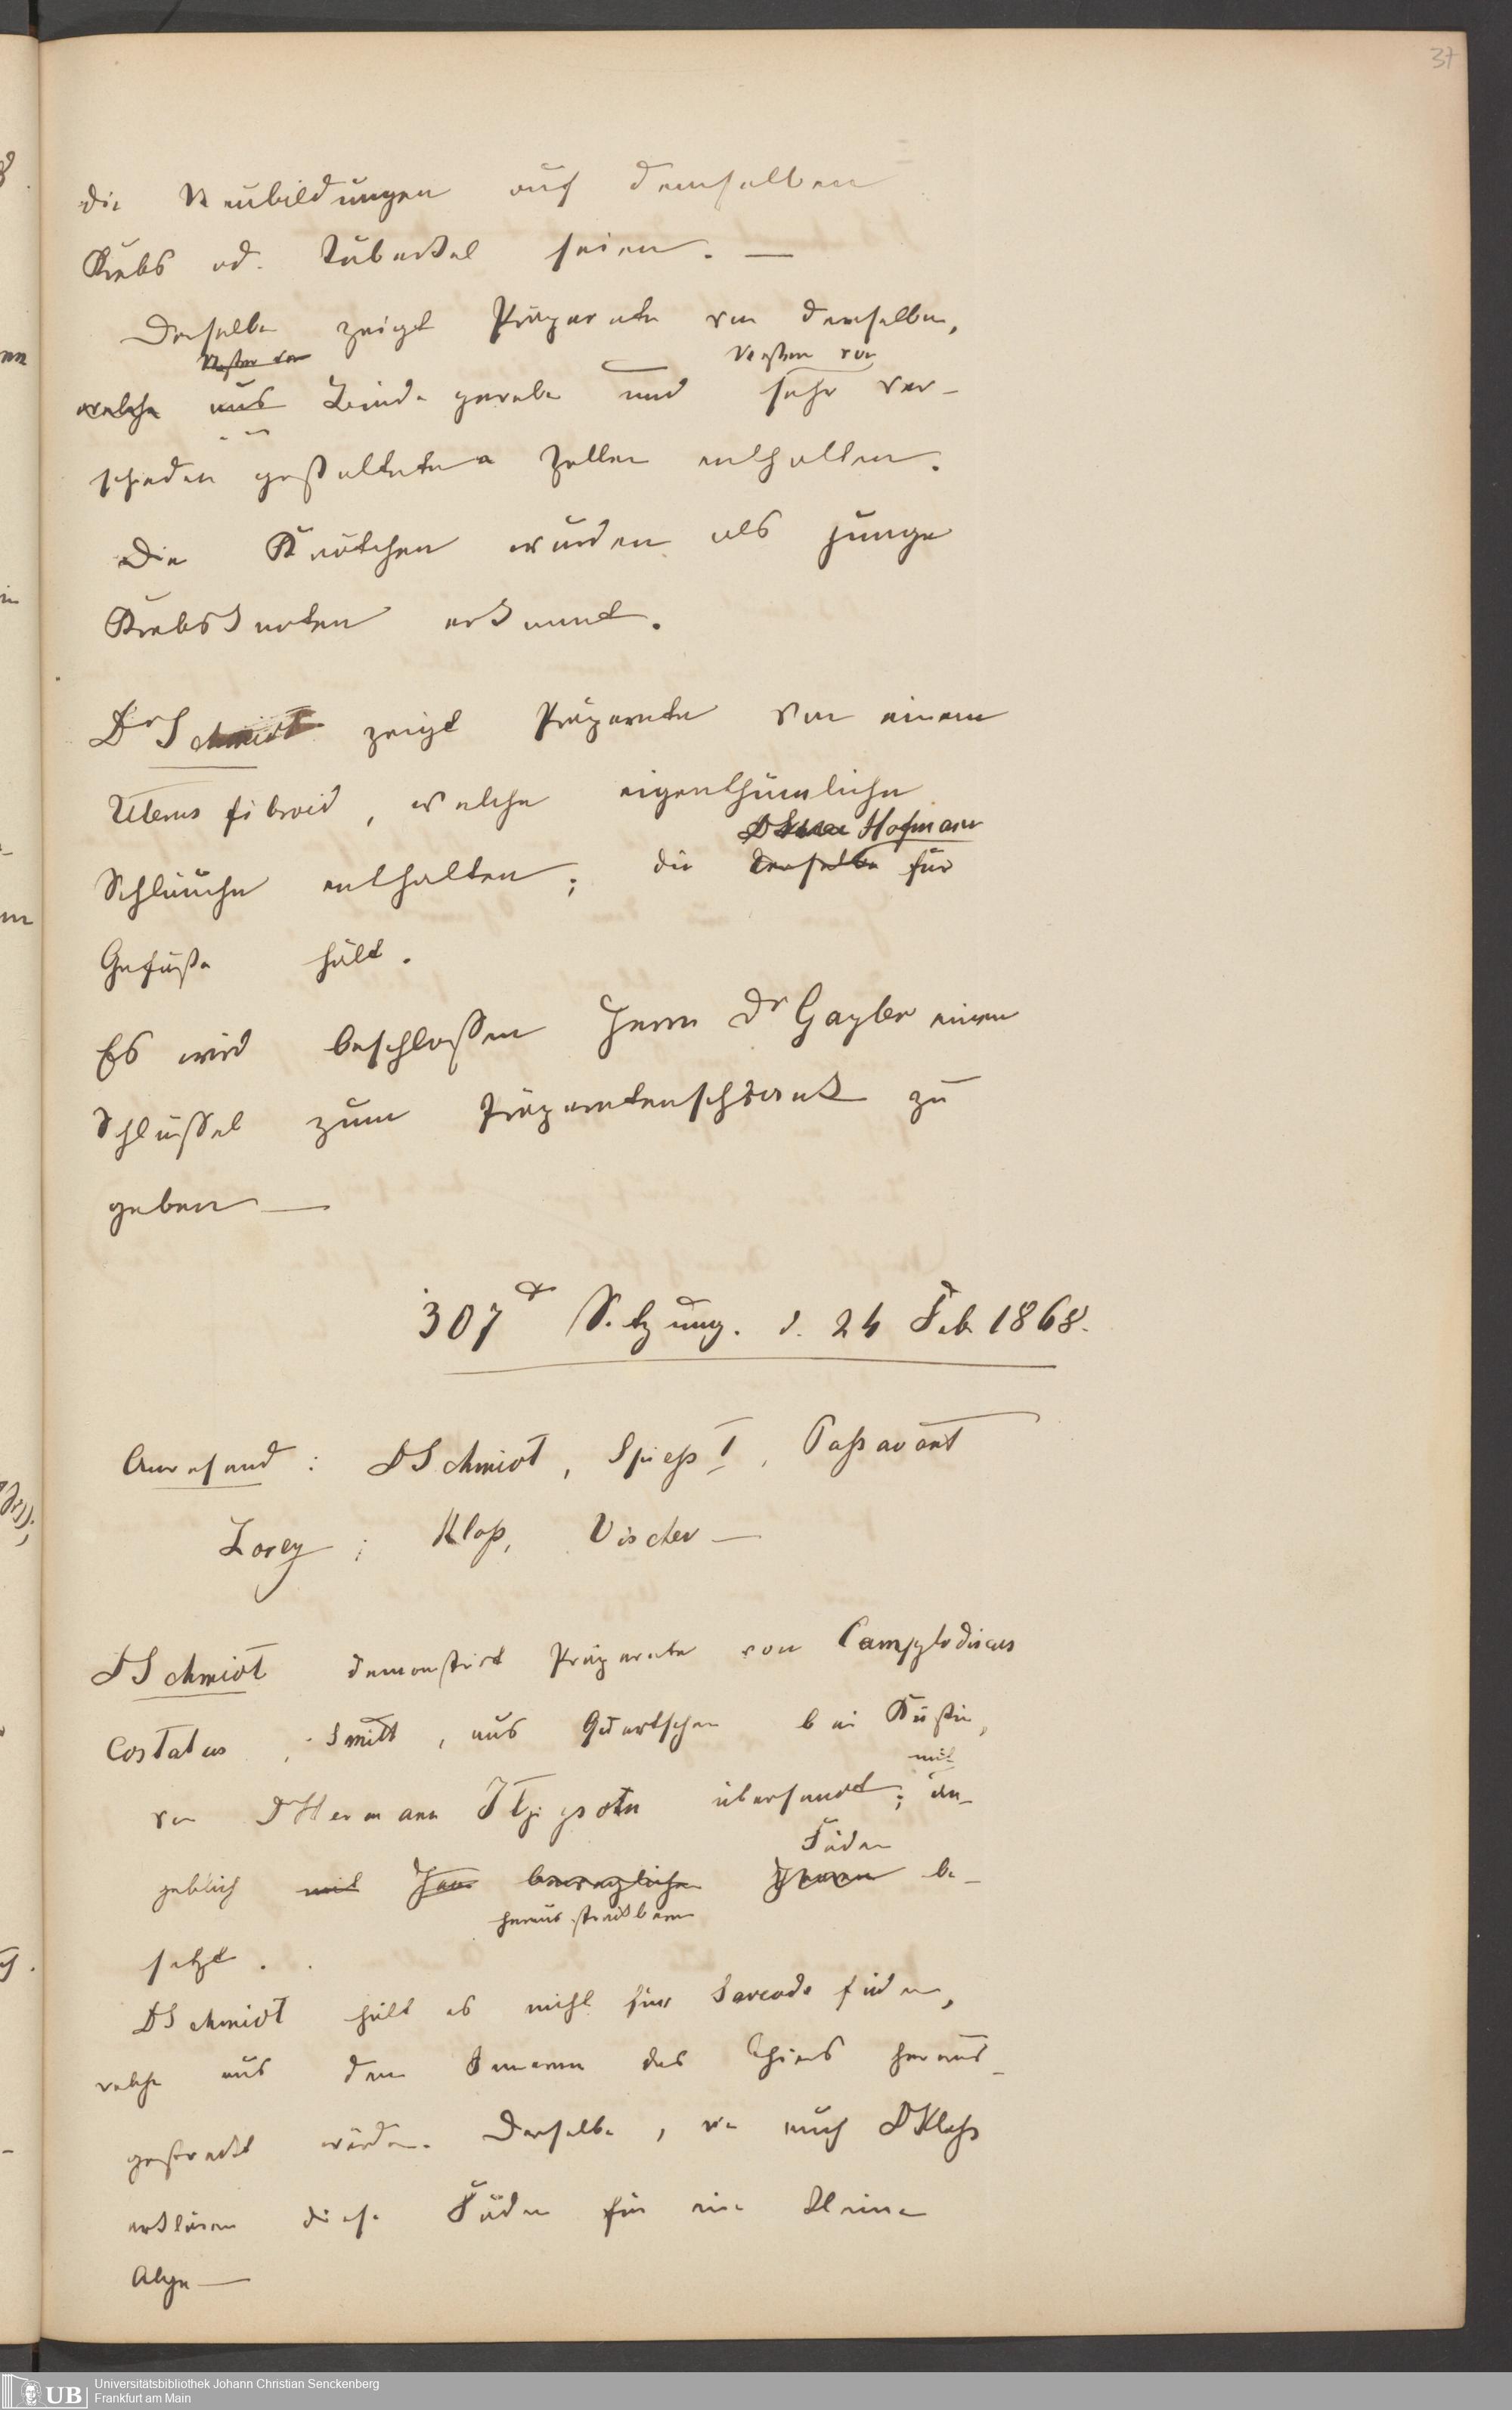 37
die Neubildungen auf demselben
Krebs od. Tuberkel seien. —
Derselbe zeigt Präparate von demselben,
Nester von
welche aus Bindegewebe und sehr ver-
schieden gestalteten Zellen enthalten.
Die Knötchen wurden als junge
Krebsknoten erkannt.
Dr Schmidt zeigt Präparate von einem
Uterusfibroid, welche eigenthümliche
Hofmann
Schläuche enthalten; die derselbe für
Gefäße hält.
Es wird beschlossen Herrn Dr Gayler einen
Schlüssel zum Präparatenschrank zu
geben —
307te Sitzung. d. 24 Feb 1868.
Anwesend: Dr Schmidt, Spiess I, Passavant
Lorey; Kloß, Vischer —
Dr Schmidt demonstrirt Präparate von Campylodiscus
costatus, Smitt, aus Quartschen bei Küstrin,
mit
von Dr Hermann übersandt; an-
Fäden
geblich mit beweglichen be-
herausstreckbaren
setzt.
Dr Schmidt hält es nicht für Sarcodefäden,
welche aus dem Inneren des Thiers heraus-
gestreckt würden. Derselbe, wie auch Dr Kloß
erklären diese Fäden für eine kleine
Alge —
UB Universitätsbibliothek Johann Christian Senckenberg
Frankfurt am Main